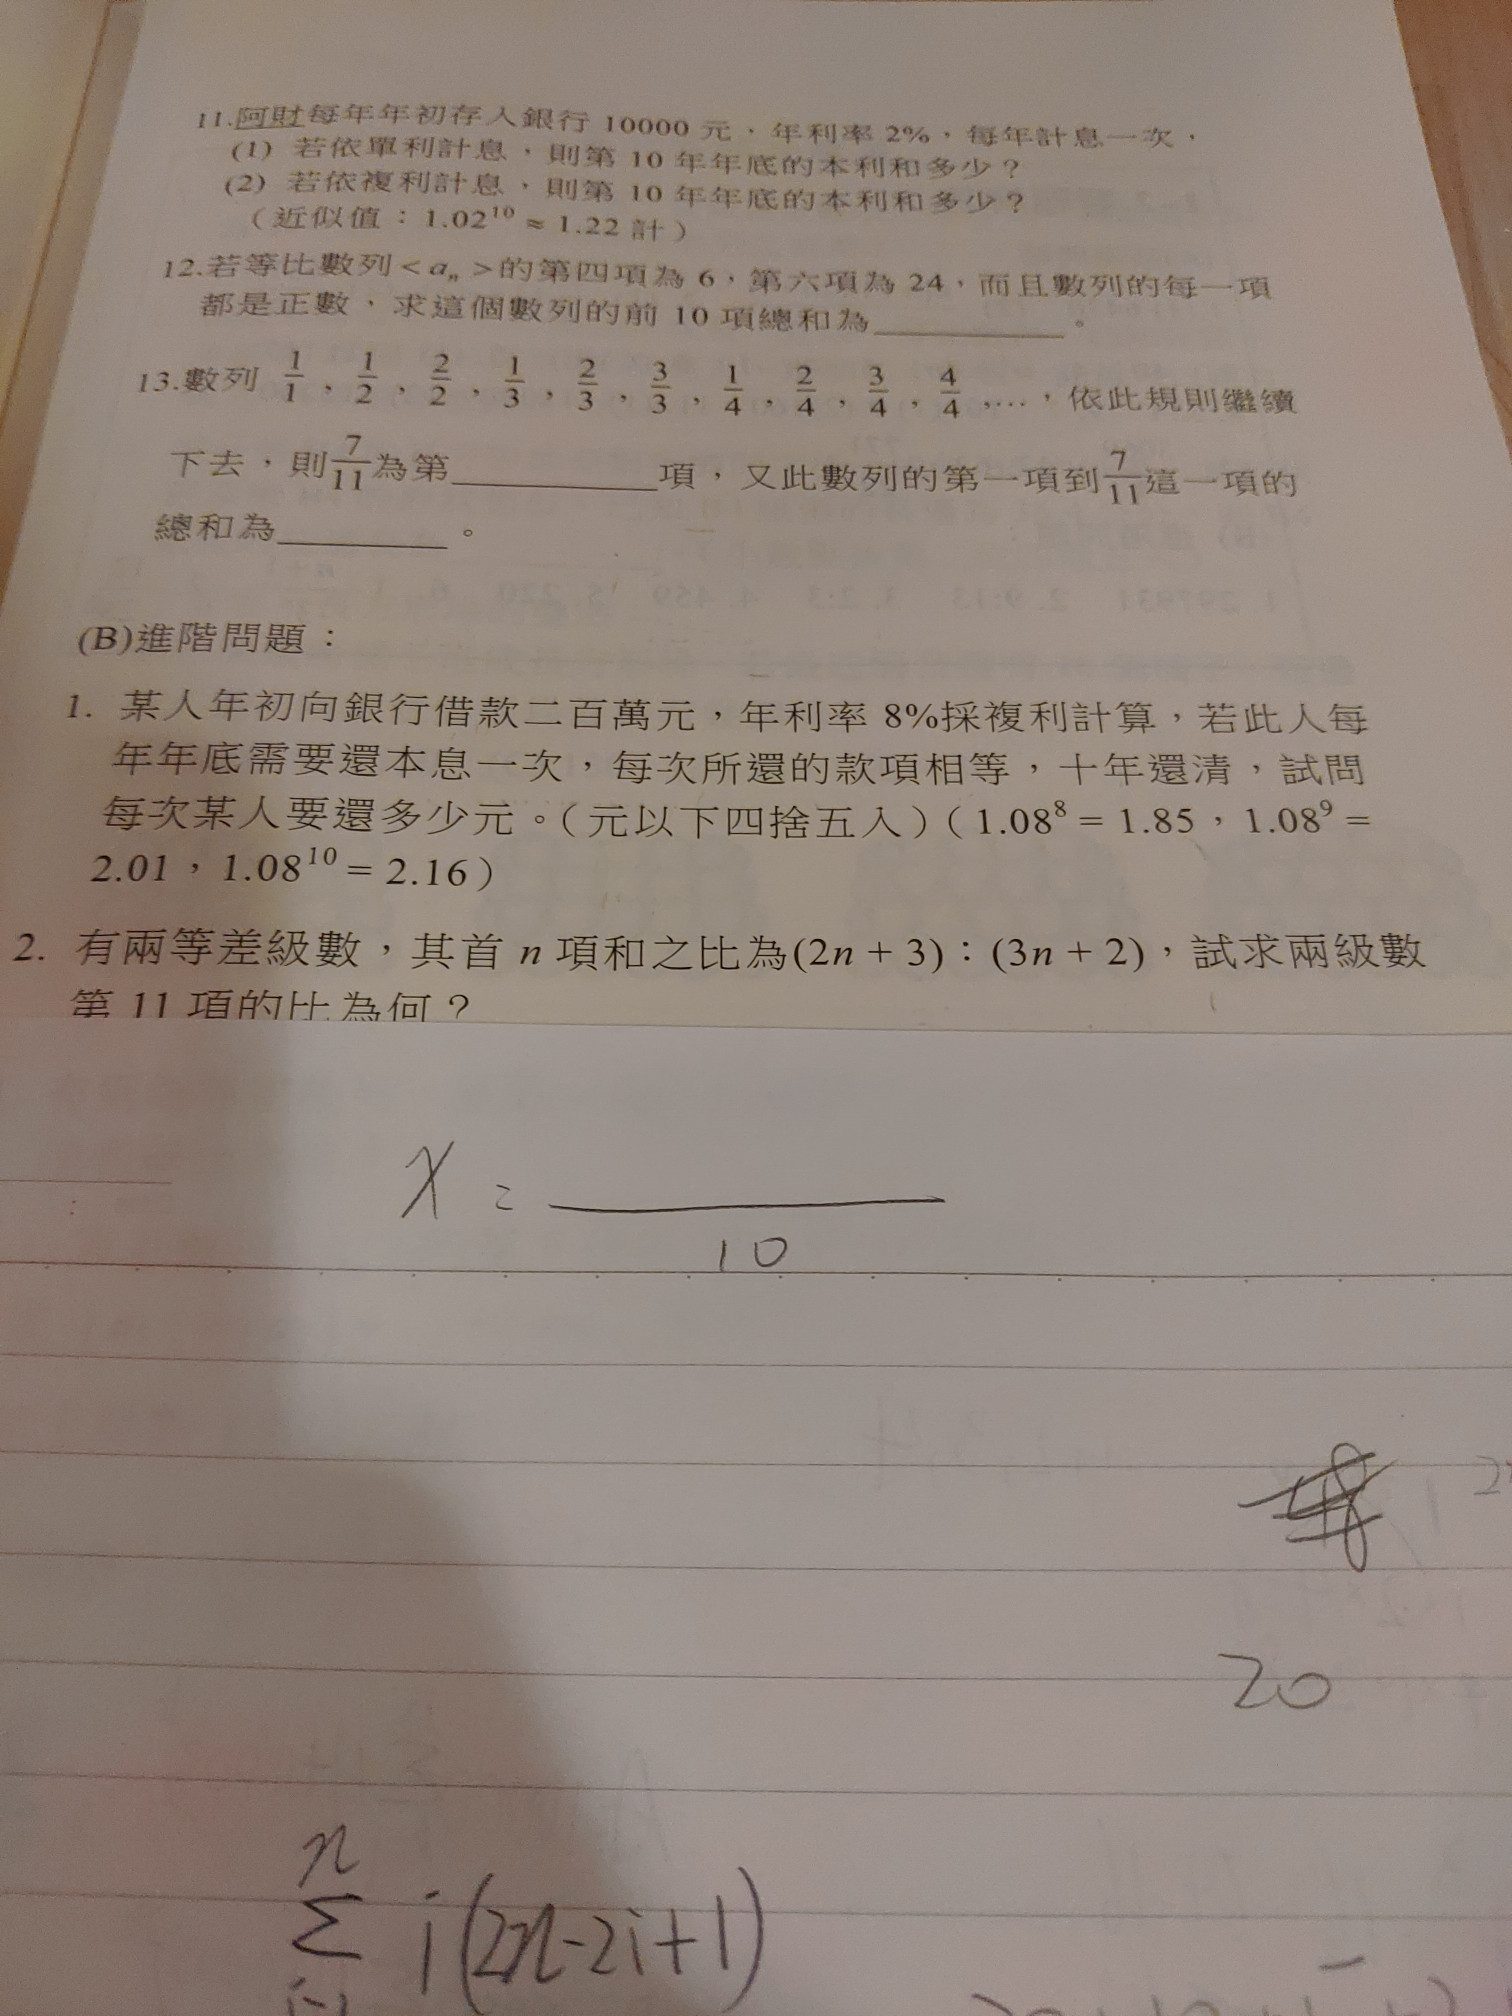 11.阿財每年年初存入銀行 10000 元，年利率 2%，每年計息一次，
(1) 若依單利計息，則第 10 年年底的本利和多少？
(2) 若依複利計息，則第 10 年年底的本利和多少？
（近似值：1.02¹⁰ ≈ 1.22 計）
12.若等比數列 < aₙ > 的第四項為 6，第六項為 24，而且數列的每一項
都是正數，求這個數列的前 10 項總和為__________。
13.數列 1/1，1/2，2/2，1/3，2/3，3/3，1/4，2/4，3/4，4/4，…，依此規則繼續
下去，則 7/11 為第__________項，又此數列的第一項到 7/11 這一項的
總和為________。
(B)進階問題：
1. 某人年初向銀行借款二百萬元，年利率 8%採複利計算，若此人每
年年底需要還本息一次，每次所還的款項相等，十年還清，試問
每次某人要還多少元。（元以下四捨五入）（1.08⁸ = 1.85，1.08⁹ =
2.01，1.08¹⁰ = 2.16）
2. 有兩等差級數，其首 n 項和之比為(2n + 3)：(3n + 2)，試求兩級數
第 11 項的比為何？
x = ―/10
20
n
Σ i(2n-2i+1)